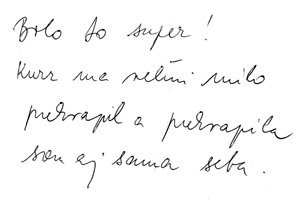 Bolo to super!
Kurz ma veľmi milo
prekvapil a prekvapila
som aj sama seba.